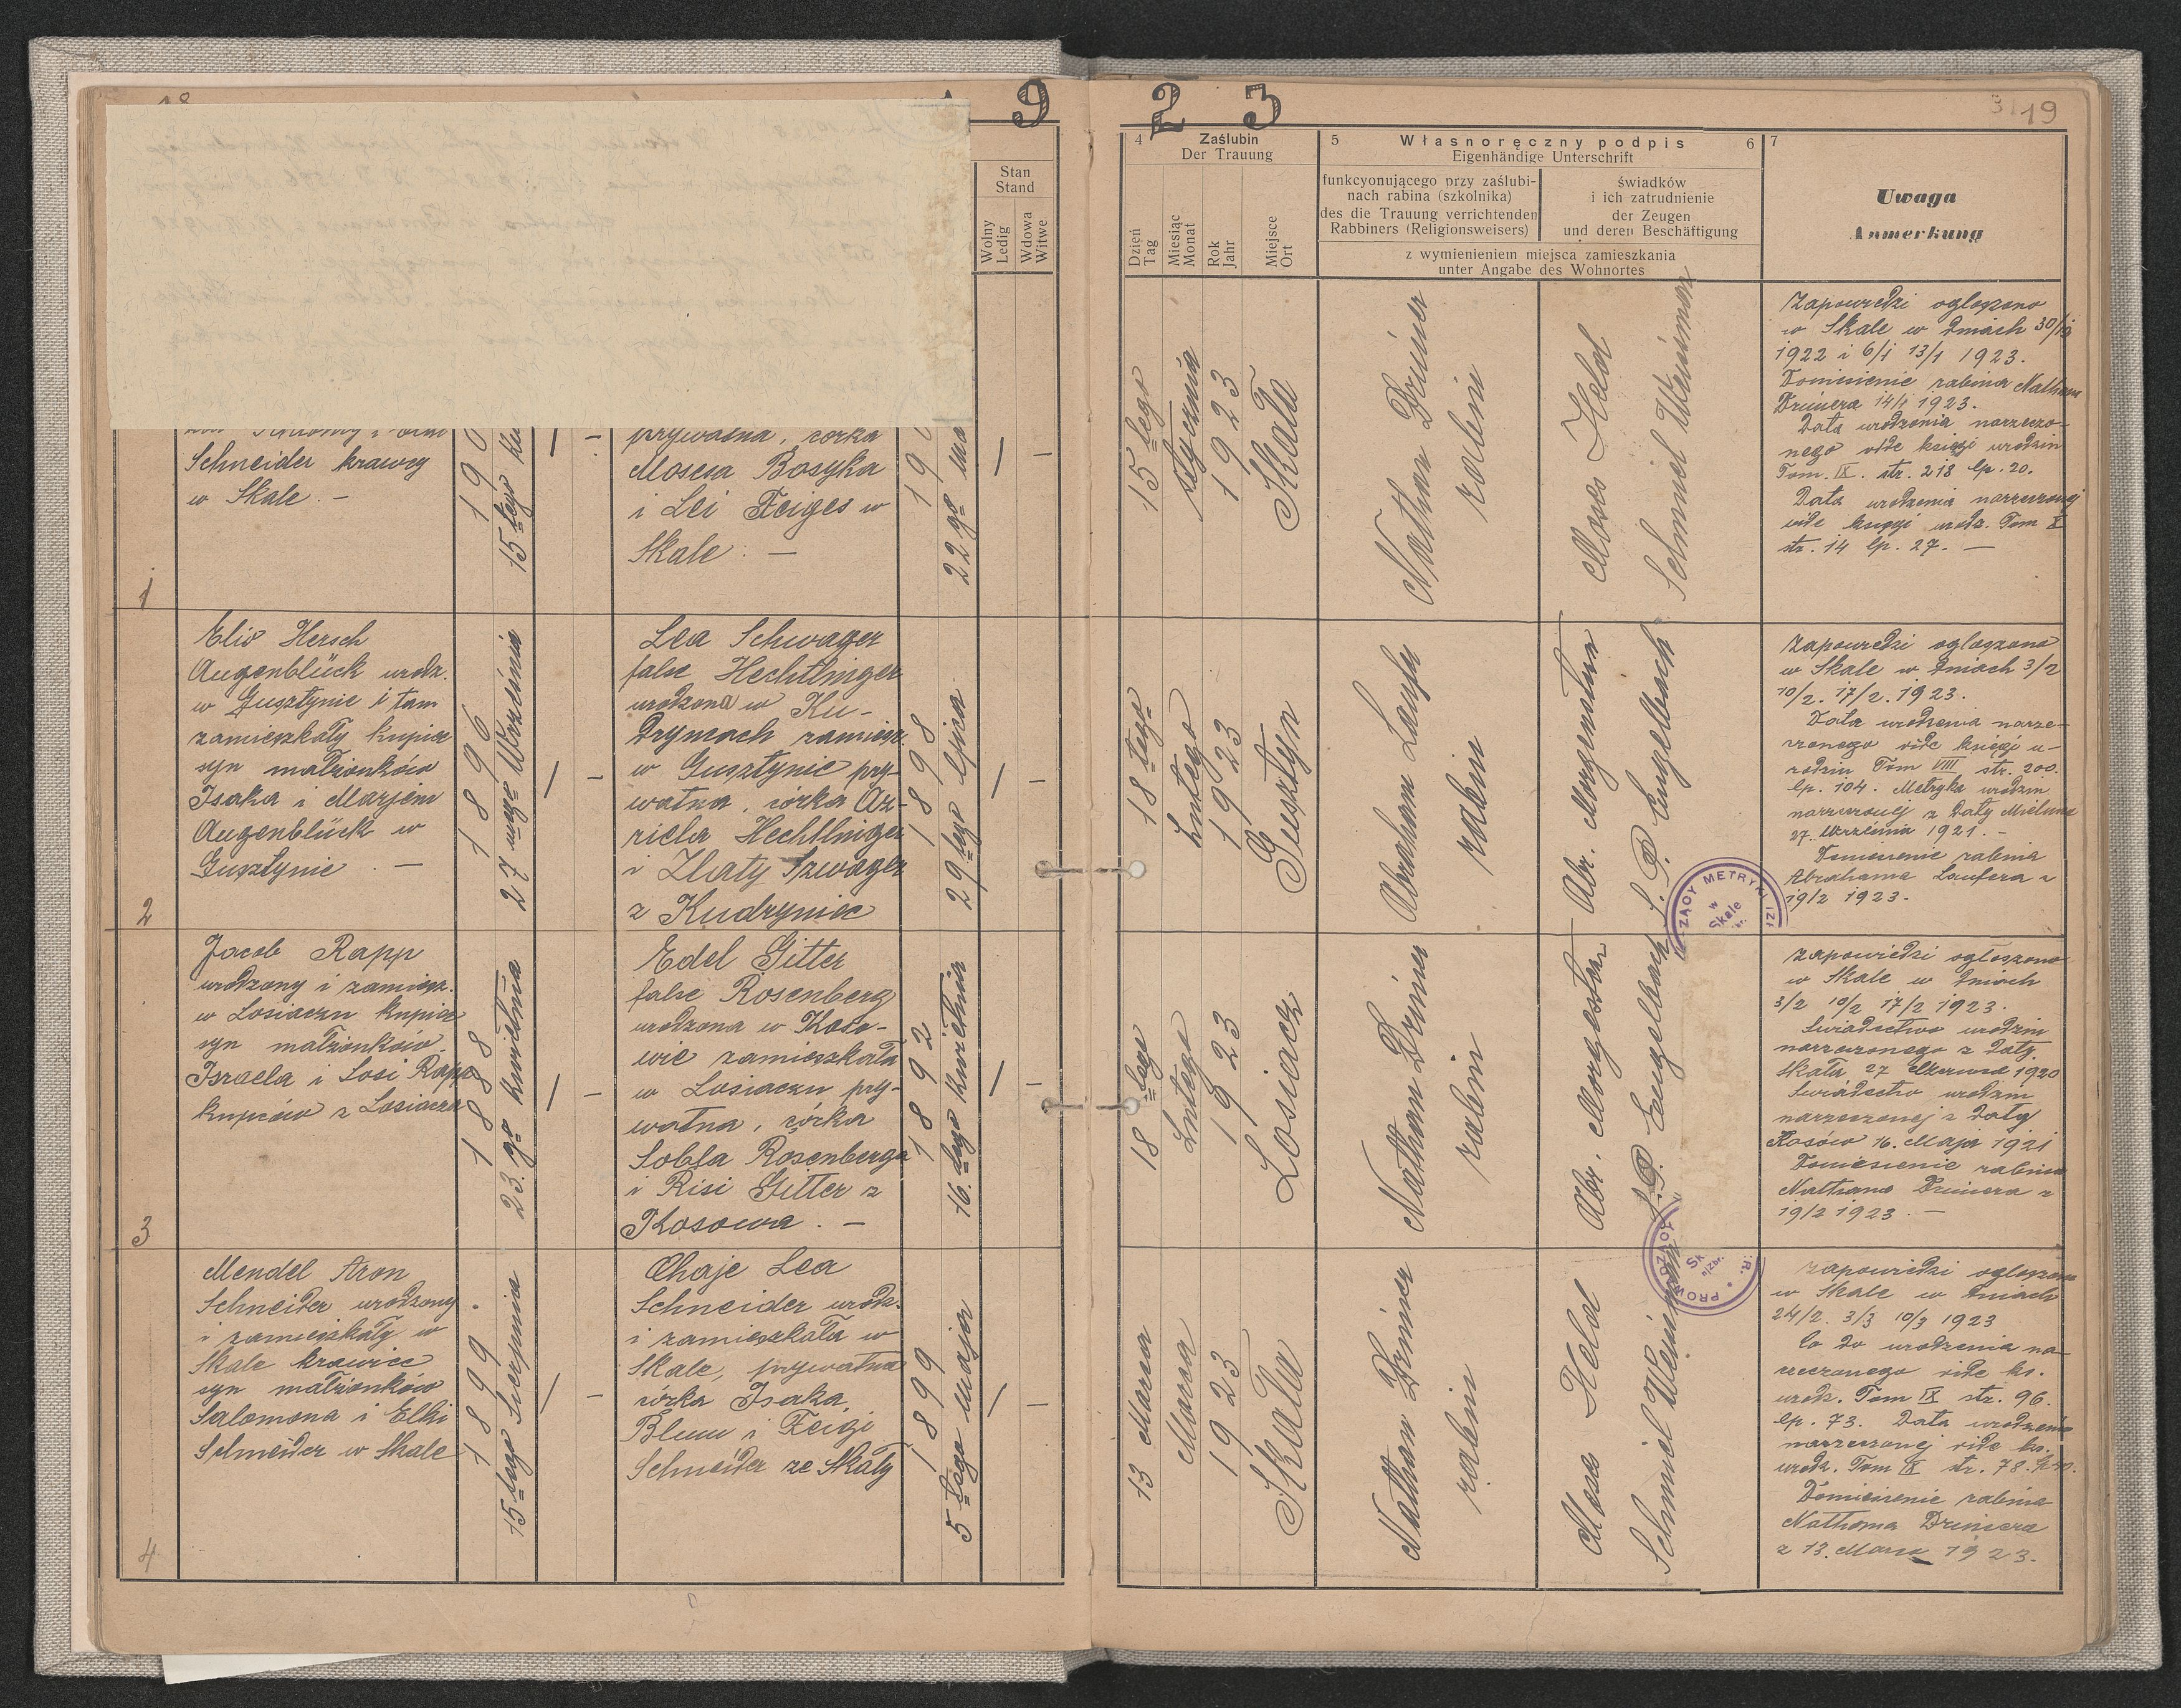 1 9 2 3
19
Stan
Stand
Wolny
Ledig
Wdowa
Witwe
4
Zaślubin
Der Trauung
Dzień
Tag
Miesiąc
Monat
Rok
Jahr
Miejsce
Ort
5 Własnoręczny podpis 6
Eigenhändige Unterschrift
funkcyonującego przy zaślubi-
nach rabina (szkolnika)
des die Trauung verrichtenden
Rabbiners (Religionsweisers)
świadków
i ich zatrudnienie
der Zeugen
und deren Beschäftigung
z wymienieniem miejsca zamieszkania
unter Angabe des Wohnortes
7
Uwaga
Anmerkung
1
Schneider krawcy
w Skale. –
15 tego
prywatna, córka
Mosesa Bosyka
i Lei Feiges w
Skale. –
22 go
15 tego
stycznia
1923
Skała
Nathan Drimer
rabin
Moses Held
Schmiel Weinman
Zapowiedzi ogłoszono
w Skale w dniach 30/12
1922 i 6/1 13/1 1923.
Doniesienie rabina Nathana
Drimera 14/1 1923.
Data urodzenia narzeczo-
nego vide księgi urodzin
Tom. IX. str. 218 lp. 20.
Data urodzenia narzeczonej
vide księgi urodz. Tom X
str. 14 lp. 27. –
2
Elio Hersch
Augenblück urodz.
w Gusztynie i tam
zamieszkały kupiec
syn małżonków
Isaka i Marjem
Augenblück w
Gusztynie –
1896
27 mego Września
Lea Schwager
false Hechtlinger
urodzona w Ku-
dryncach zamiesz.
w Gusztynie pry-
watna, córka Az-
riela Hechtlinger
i Zlaty Szwager
z Kudryniec
1898
29 tego lipca
18 tego
Lutego
1923
Gusztyn
Abraham Laufer
rabin
Abr. Morgenstern
S. P. Engelbach
Zapowiedzi ogłoszono
w Skale w dniach 3/2
10/2. 17/2. 1923.
Data urodzenia narze-
czonego vide księgi u-
rodzin Tom VIII str. 200.
lp. 104. Metryka urodzin
narzeczonej z daty Mielnica
27. Września 1921. –
Doniesienie rabina
Abrahama Laufera z
19/2 1923.
3
Jacob Rapp
urodzony i zamiesz.
w Losiaczu kupiec
syn małżonków
Israela i Sosi Rapp
kupców z Losiacza
1888
23 go Kwietnia
Edel Gitter
false Rosenberg
urodzona w Koso-
wie zamieszkała
w Losiaczu pry-
watna, córka
Sobla Rosenberga
i Risi Gitter z
Kosowa. –
1892
16. tego Kwietnia
18 tego
Lutego
1923
Losiacz
Nathan Drimer
rabin
Abr. Morgenstern
S. P. Engelbach
Zapowiedzi ogłoszono
w Skale w dniach
3/2 10/2 17/2 1923.
Swiadectwo urodzin
narzeczonego z daty
Skała 27 Czerwca 1920
Swiadectwo urodzin
narzeczonej z daty
Kosów 16. Maja 1921
Doniesienie rabina
Nathana Drimera z
19/2 1923. –
4
Mendel Aron
Schneider urodzony
i zamieszkały w
Skale krawiec
syn małżonków
Salomona i Elki
Schneider w Skale
1899
15 tego Sierpnia
Chaje Lea
Schneider urodz.
i zamieszkała w
Skale, prywatna
córka Isaka
Blum i Feigi
Schneider ze Skały
1899
5 tego maja
13 Marca
Marca
1923
Skała
Nathan Drimer
rabin
Moses Held
Schmiel Weinman
Zapowiedzi ogłoszono
w Skale w dniach
24/2. 3/3 10/3 1923
Co do urodzenia na-
rzeczonego vide ks.
urodz. Tom IX str. 96.
lp. 73. Data urodzenia
narzeczonej vide ks.
urodz. Tom IX str. 78.
Doniesienie rabina
Nathana Drimera
z 13. Marca 1923.